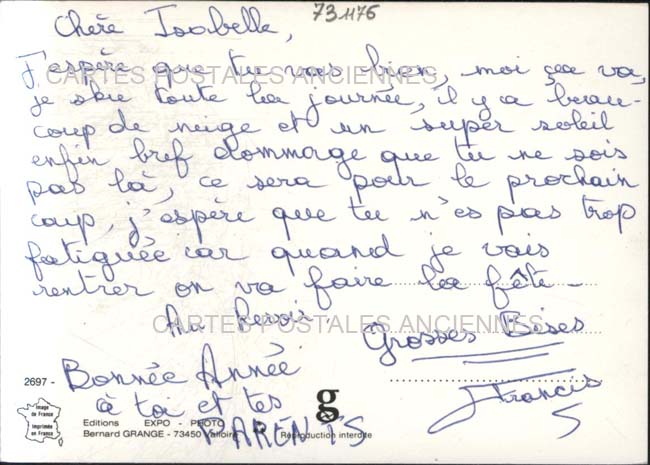 731176
Chère Isabelle,
J'espère que tu vas bien, moi ça va,
CARTES POSTALES ANCIENNES
je skie toute la journée, il y a beau-
coup de neige et un super soleil
enfin bref dommage que tu ne sois
pas là, ce sera pour le prochain
coup, j'espère que tu n'es pas trop
fatiguée car quand je vais
rentrer on va faire la fête -
Au Revoir.
CARTES POSTALES ANCIENNES
Grosses Bises
Francis
2697 - Bonnée Année
à toi et tes
PARENTS
Image
de France
Imprimée
en France
Editions EXPO - PHOTO
Bernard GRANGE - 73450 Valloire
g
Reproduction interdite